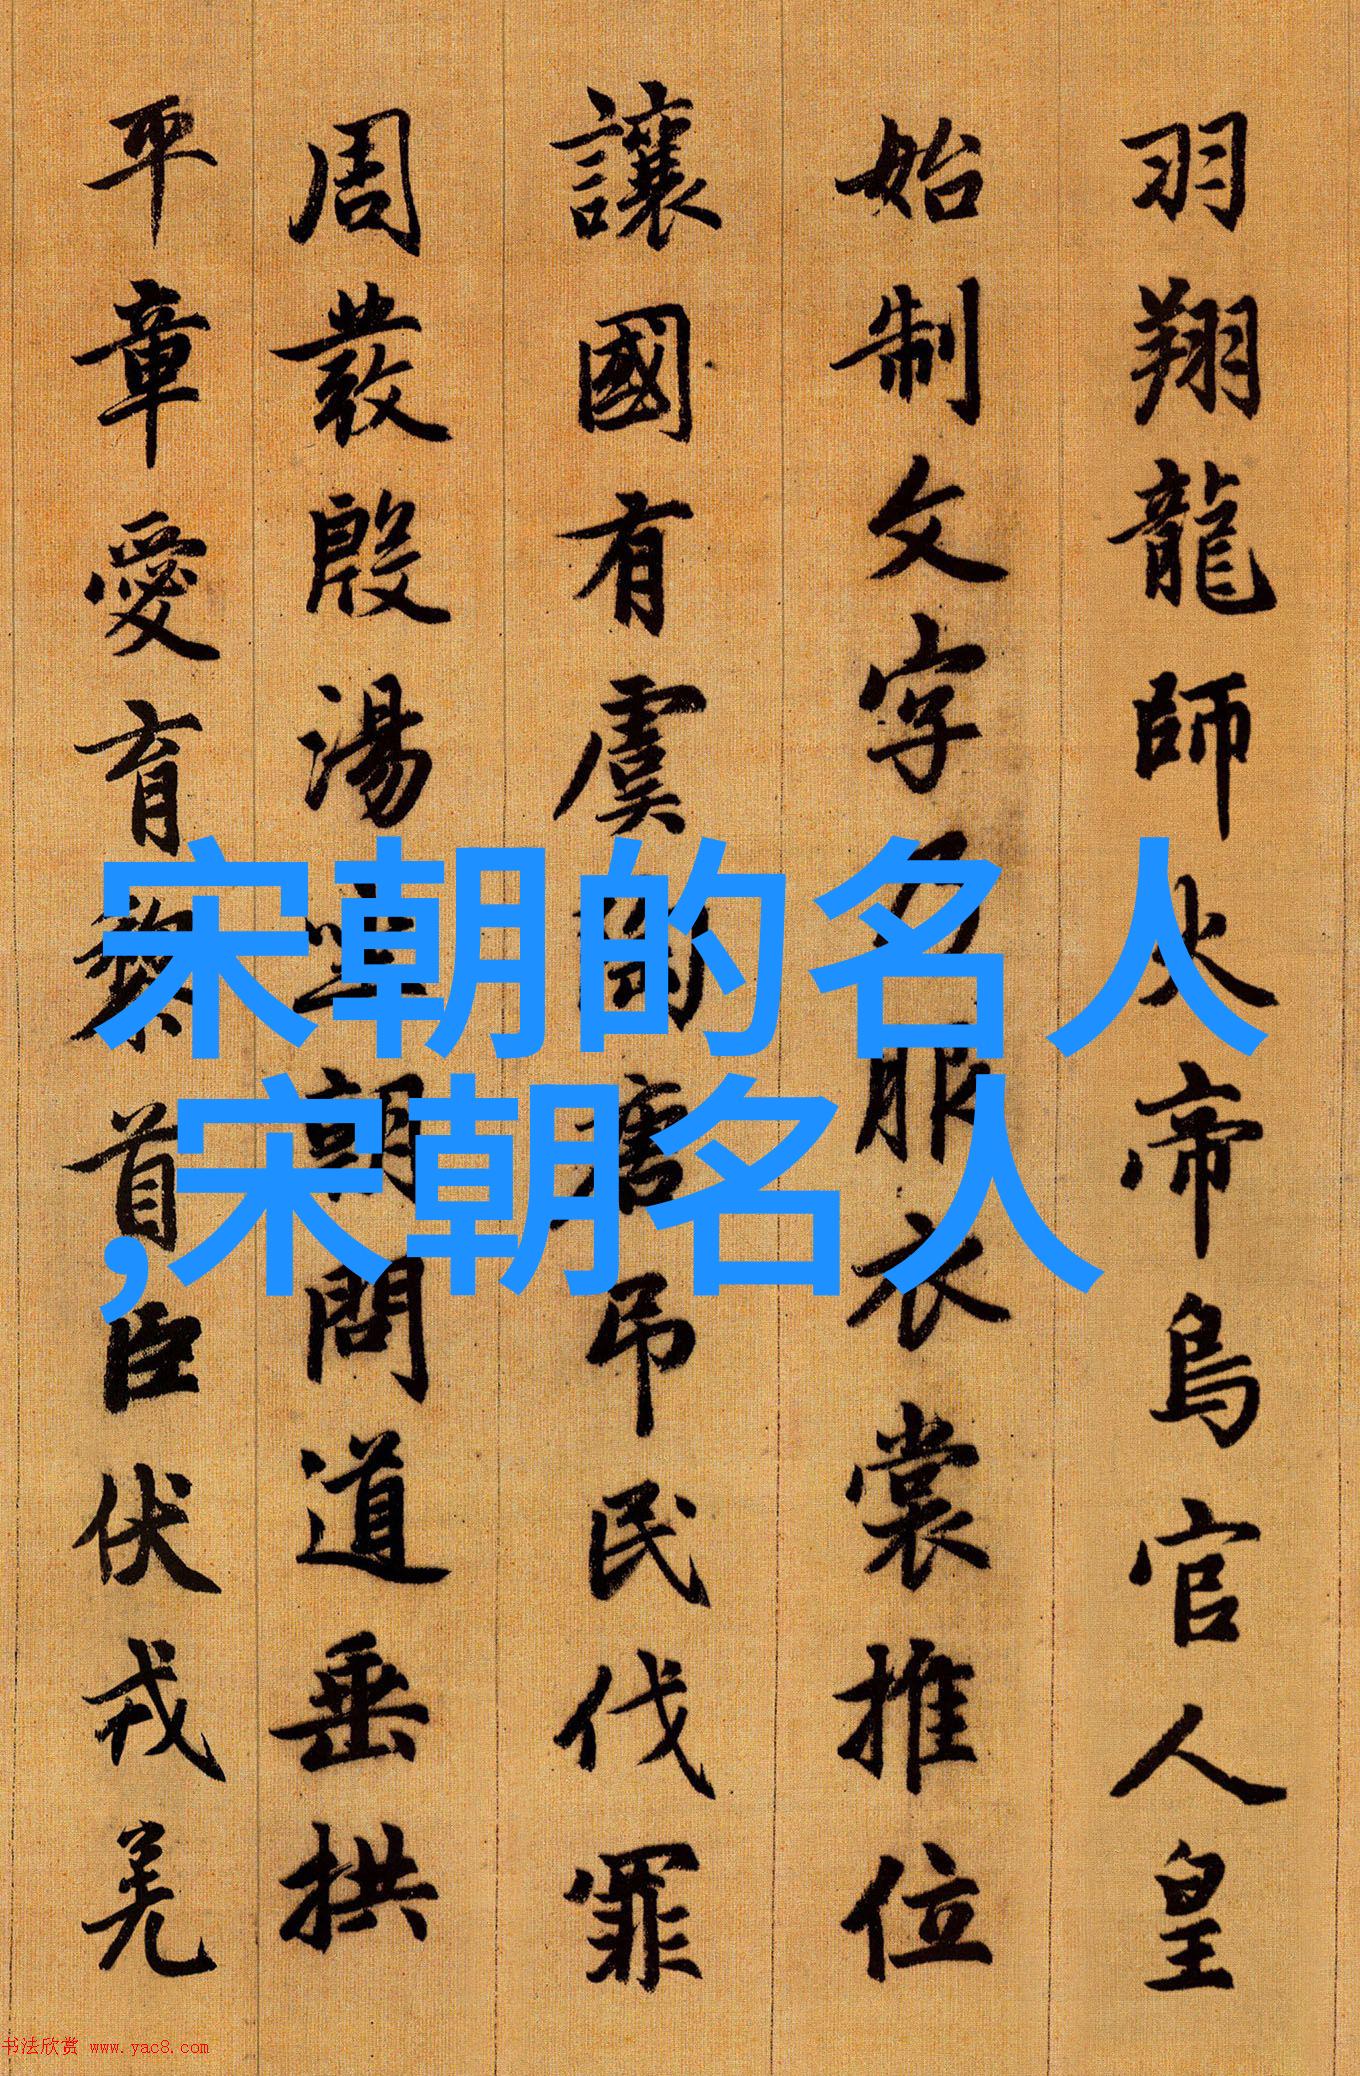 羽翔龍師火帝鳥官人皇
始制文字乃服衣裳推位
讓國有虞陶唐吊民伐罪
周發殷湯坐朝問道垂拱
平章愛育黎首臣伏戎羌
宋朝的名人
,宋朝名人
书法欣赏 www.yac8.com